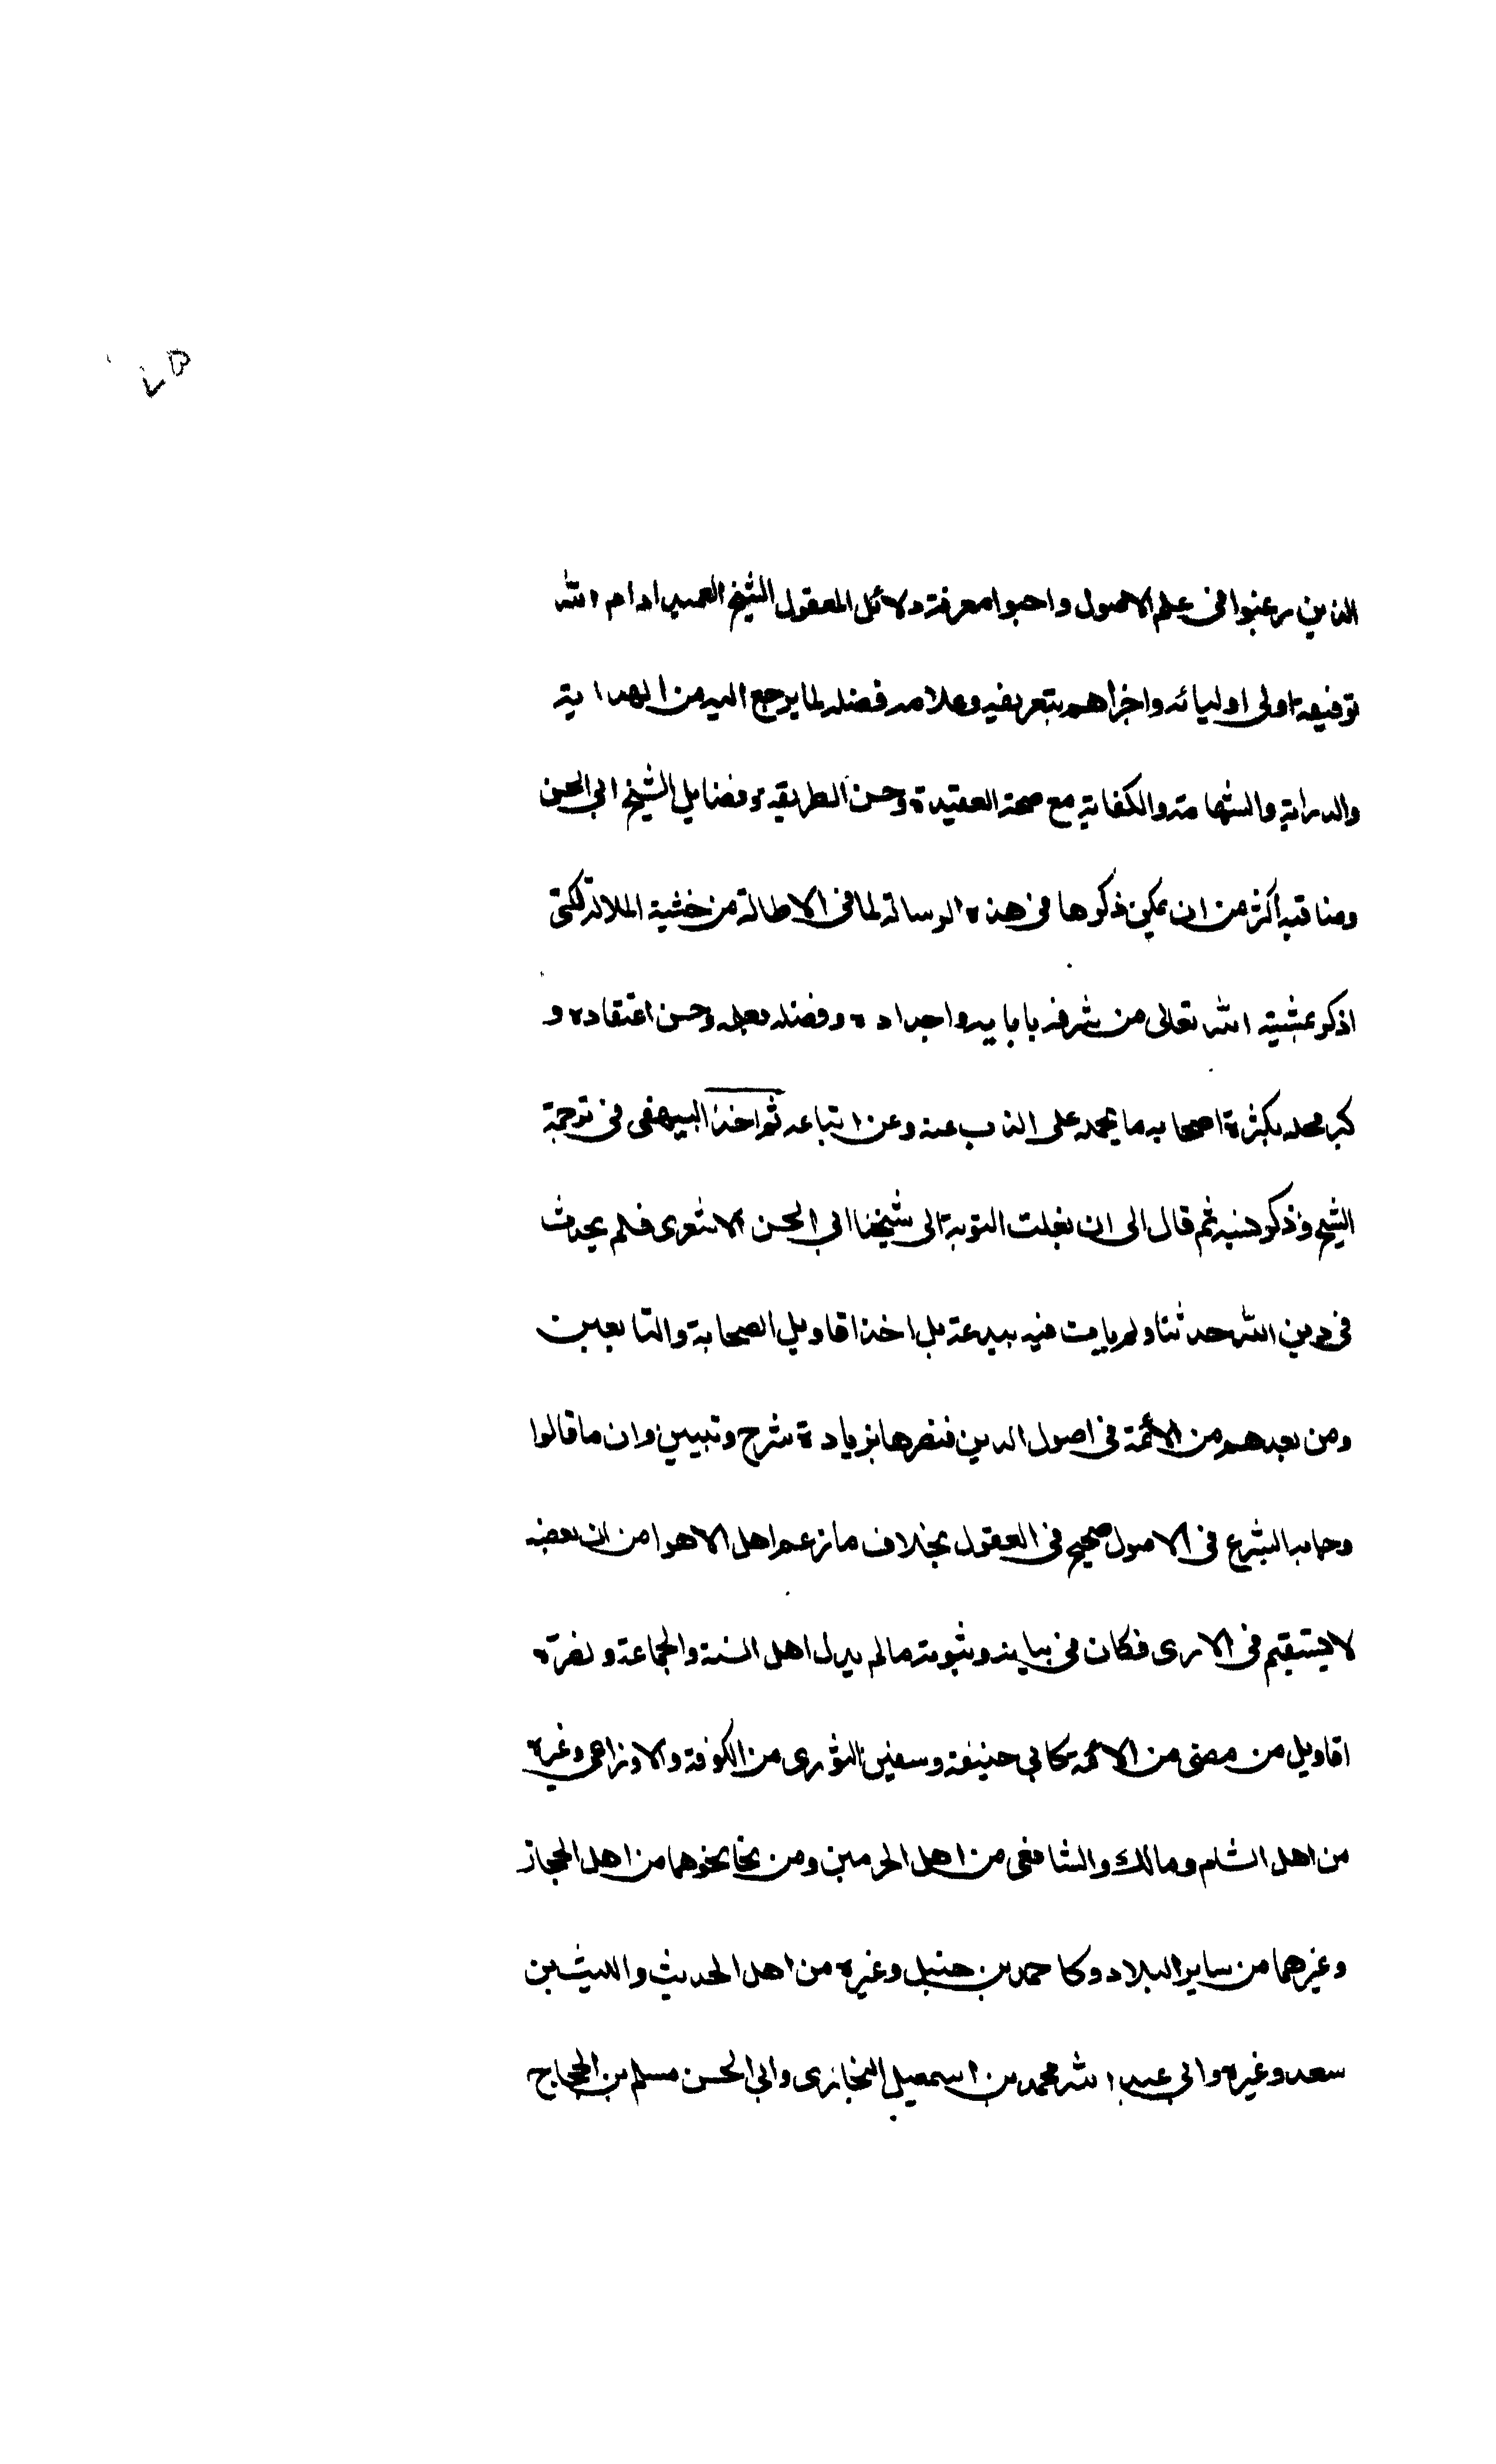 ٥٧
الذين رغبوا في علم الاصول واحبوا معرفة دلائل المعقول الشيخ العميد ادام الله
توفيقه اولى اوليائه واخراهم بتعريفه وعلامه فضله لما يرجع اليه من الهداية
والدراية والشهامة والكفاية مع صحة العقيدة وحسن الطريقة وفضايل الشيخ ابي الحسن
ومناقبه اكثر من ان يمكن ذكرها في هذه الرسالة لما في الاطالة من خشية الملالة لكني
اذكر بمشية الله تعالى من شرفه بابايه واجداده وفضله بعلمه وحسن اعتقاده و
كبر محله بكثرة اصحابه ما يحمله على الذب عنه وعن اتباعه ثم اخذ البيهقي في ترجمة
الشيخ وذكر نسبه ثم قال الى ان بلغت النوبة الى شيخنا ابي الحسن الاشعري فلم يحدث
في دين الله حدثنا ولم يات فيه ببدعة بل اخذ اقاويل الصحابة والتابعين
ومن بعدهم من الأئمة في اصول الدين فنصرها بزيادة شرح وتبيين وان ما قالوا
وجا به الشرع في الاصول صحيح في العقول بخلاف ما زعم اهل الاهوا من ان بعضه
لا يستقيم في الارى فكان في بيانه وثبوته ما لم يدل اهل السنة والجماعة ونصرة
اقاويل من مضى من الائمة كابي حنيفة وسفين الثوري من الكوفة والاوزاعي وغيره
من اهل الشام ومالك والشافعي من اهل الحرمين ومن نحا نحوهما من اهل الحجاز
وغيرهما من ساير البلاد وكاحمد بن حنبل وغيره من اهل الحديث والليث بن
سعد وغيره وابي عبد الله محمد بن اسمعيل البخاري وابي الحسن مسلم بن الحجاج